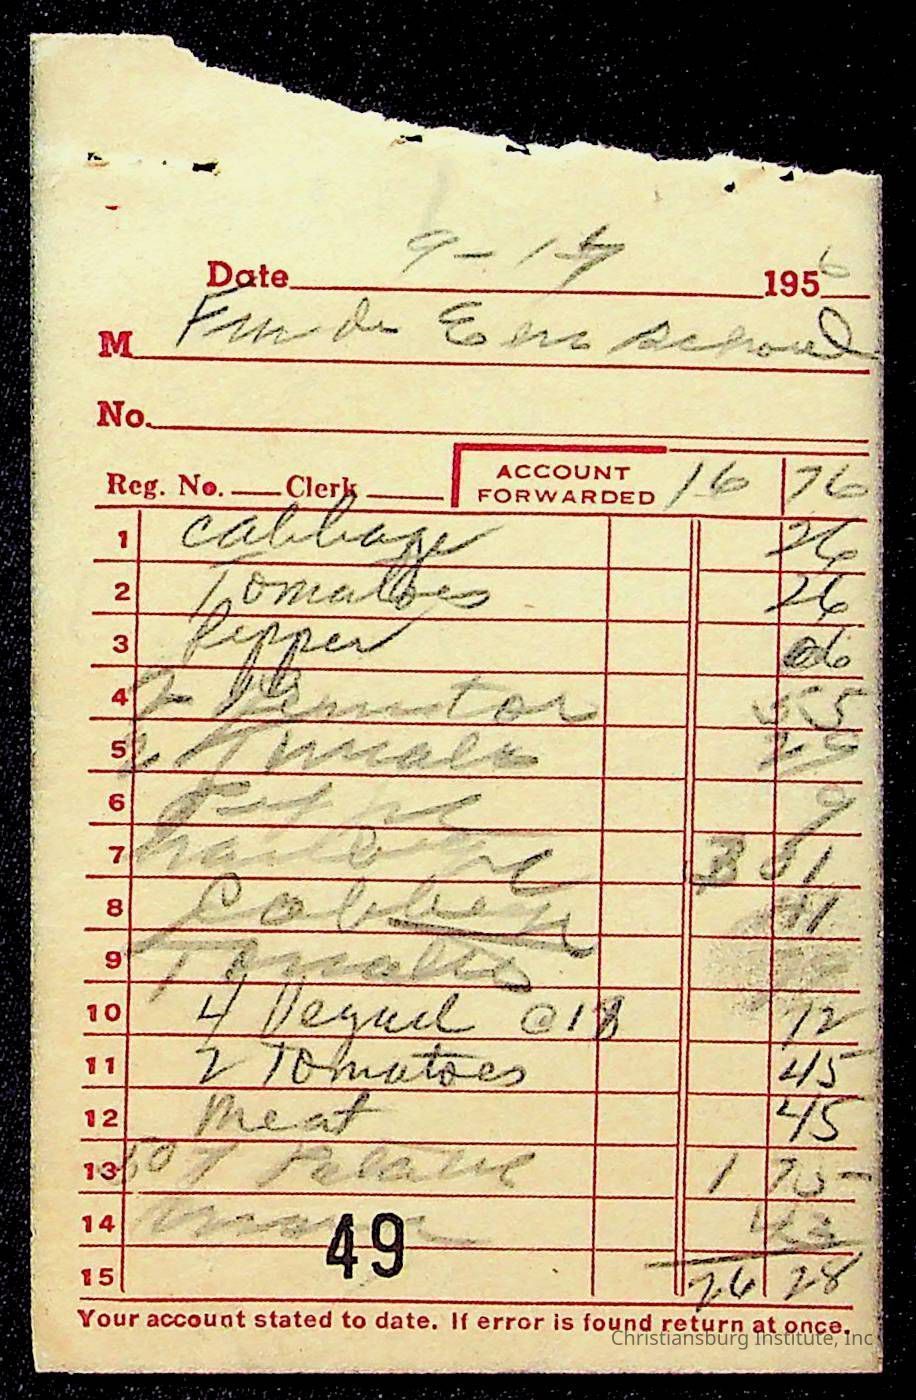 Date 9-17 1956
M Elem School
No.
Reg. No. Clerk ACCOUNT FORWARDED 16 76
1 cabbage 26
2 Tomatoes 26
3 Pepper 06
4 2 55
5 2
6 9
7 3 51
8 Cabbage 41
9 Tomatoes
10 4 @18 72
11 2 Tomatoes 45
12 Meat 45
13 50 1 75
14 43
49
15 26 28
Your account stated to date. If error is found return at once.
Christiansburg Institute, Inc